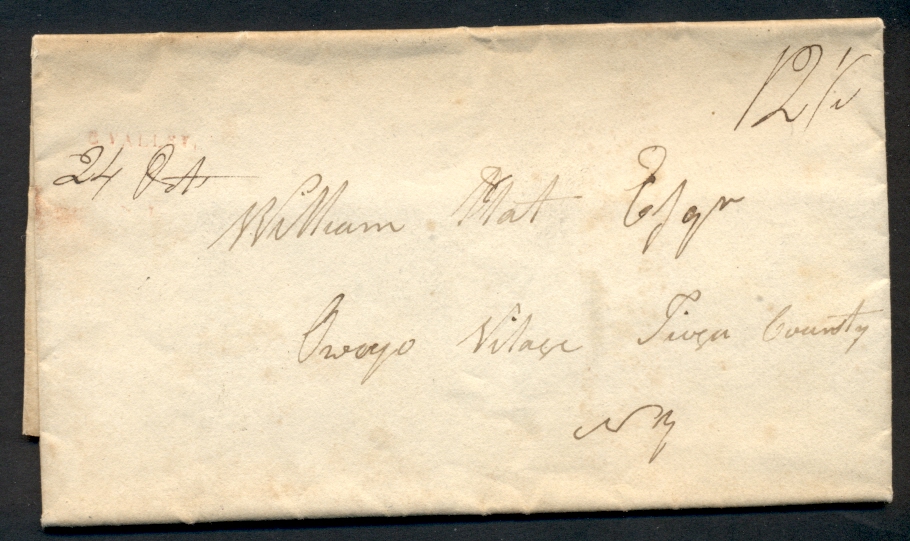 12 1/2
C VALLEY.
24 Oct
William Plat Esqr
Owego Vilage Tioga County
NY